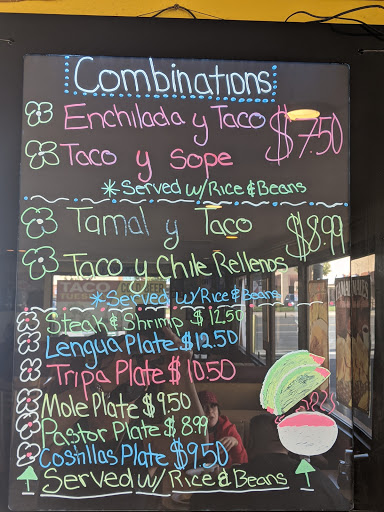 Combinations
Enchilada y Taco $7.50
Taco y Sope
*Served w/Rice & Beans
Tamal y Taco
$8.99
Taco y Chile Rellenos
*Served w/Rice & Beans
Steak & Shrimp $12.50
Lengua Plate $12.50
Tripa Plate $10.50
Mole Plate $9.50
Pastor Plate $8.99
Costillas Plate $9.50
Served w/ Rice & Beans
TACO